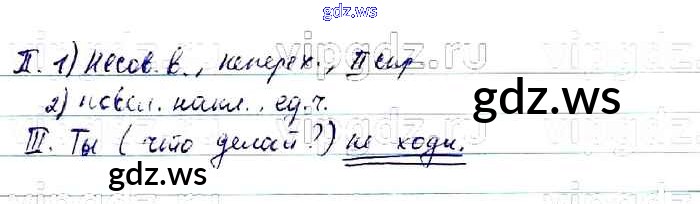 gdz.ws
II. 1) Несов. в., неперех., II спр
2) повел. накл., ед. ч.
gdz.ws
III. Ты (что делай?) не ходи.
gdz.ws